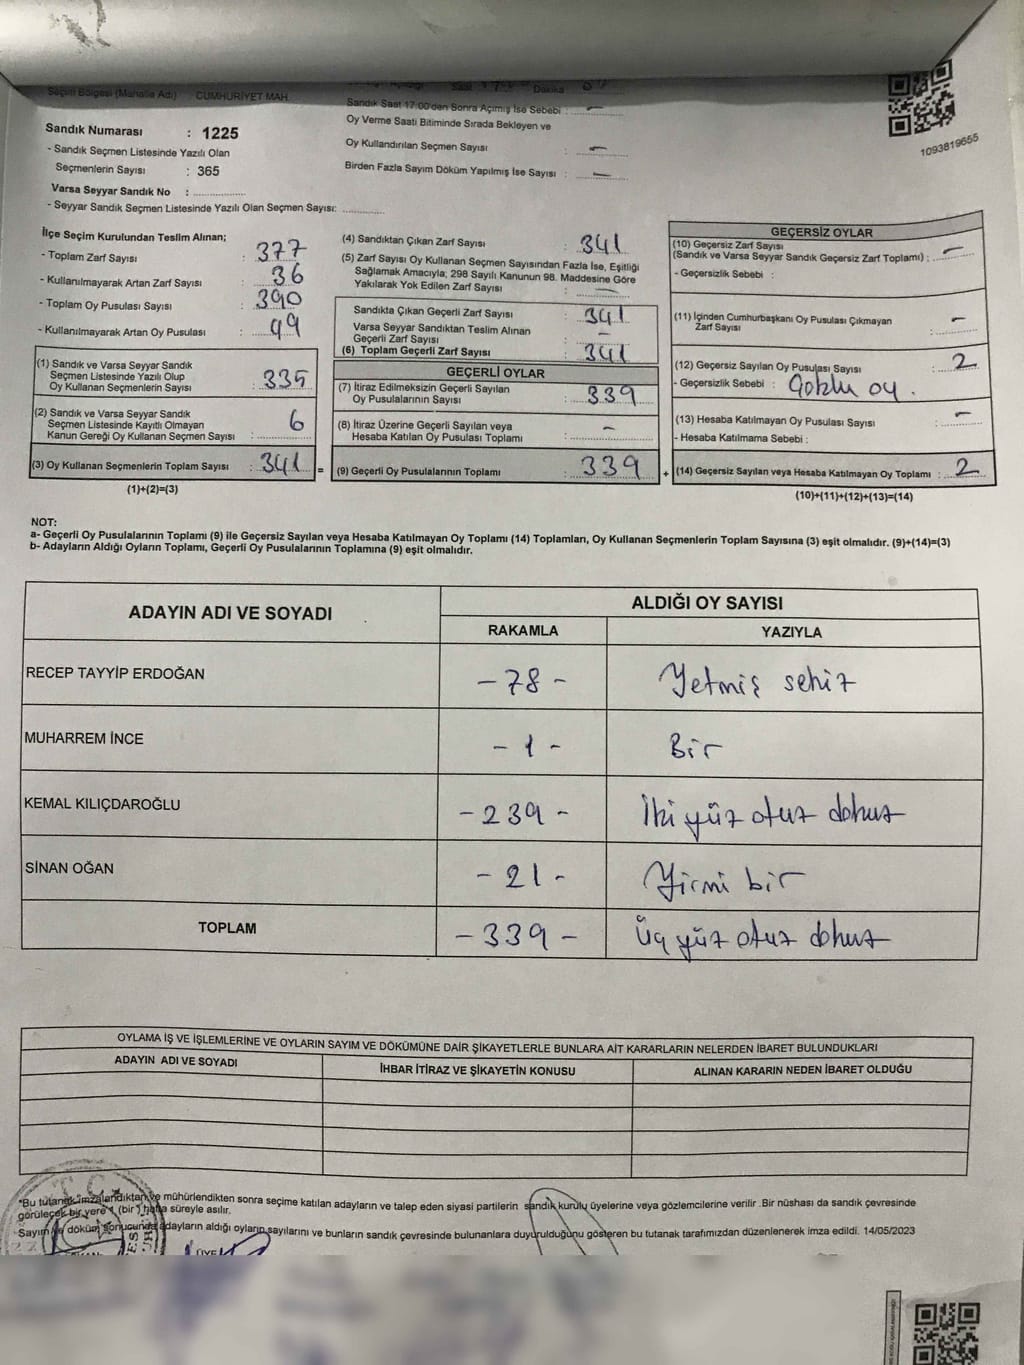 Seçim Bölgesi (Mahalle Adı) : CUMHURİYET MAH.
Sandık Numarası : 1225
- Sandık Seçmen Listesinde Yazılı Olan
Seçmenlerin Sayısı : 365
Varsa Seyyar Sandık No :
- Seyyar Sandık Seçmen Listesinde Yazılı Olan Seçmen Sayısı:
Dakika
Sandık Saat 17:00'den Sonra Açılmış İse Sebebi : —
Oy Verme Saati Bitiminde Sırada Bekleyen ve
Oy Kullandırılan Seçmen Sayısı : —
Birden Fazla Sayım Döküm Yapılmış İse Sayısı : —
1093819655
İlçe Seçim Kurulundan Teslim Alınan;
- Toplam Zarf Sayısı : 377
- Kullanılmayarak Artan Zarf Sayısı : 36
- Toplam Oy Pusulası Sayısı : 390
- Kullanılmayarak Artan Oy Pusulası : 49
(1) Sandık ve Varsa Seyyar Sandık
Seçmen Listesinde Yazılı Olup
Oy Kullanan Seçmenlerin Sayısı : 335
(2) Sandık ve Varsa Seyyar Sandık
Seçmen Listesinde Kayıtlı Olmayan
Kanun Gereği Oy Kullanan Seçmen Sayısı : 6
(3) Oy Kullanan Seçmenlerin Toplam Sayısı : 341
(1)+(2)=(3)
(4) Sandıktan Çıkan Zarf Sayısı : 341
(5) Zarf Sayısı Oy Kullanan Seçmen Sayısından Fazla İse, Eşitliği
Sağlamak Amacıyla; 298 Sayılı Kanunun 98. Maddesine Göre
Yakılarak Yok Edilen Zarf Sayısı : —
Sandıkta Çıkan Geçerli Zarf Sayısı : 341
Varsa Seyyar Sandıktan Teslim Alınan
Geçerli Zarf Sayısı : —
(6) Toplam Geçerli Zarf Sayısı : 341
GEÇERLİ OYLAR
(7) İtiraz Edilmeksizin Geçerli Sayılan
Oy Pusulalarının Sayısı : 339
(8) İtiraz Üzerine Geçerli Sayılan veya
Hesaba Katılan Oy Pusulası Toplamı : —
= (9) Geçerli Oy Pusulalarının Toplamı : 339
GEÇERSİZ OYLAR
(10) Geçersiz Zarf Sayısı
(Sandık ve Varsa Seyyar Sandık Geçersiz Zarf Toplamı) : —
- Geçersizlik Sebebi :
(11) İçinden Cumhurbaşkanı Oy Pusulası Çıkmayan
Zarf Sayısı : —
(12) Geçersiz Sayılan Oy Pusulası Sayısı : 2
- Geçersizlik Sebebi : Çoklu oy.
(13) Hesaba Katılmayan Oy Pusulası Sayısı : —
- Hesaba Katılmama Sebebi :
+ (14) Geçersiz Sayılan veya Hesaba Katılmayan Oy Toplamı : 2
(10)+(11)+(12)+(13)=(14)
NOT:
a- Geçerli Oy Pusulalarının Toplamı (9) ile Geçersiz Sayılan veya Hesaba Katılmayan Oy Toplamı (14) Toplamları, Oy Kullanan Seçmenlerin Toplam Sayısına (3) eşit olmalıdır. (9)+(14)=(3)
b- Adayların Aldığı Oyların Toplamı, Geçerli Oy Pusulalarının Toplamına (9) eşit olmalıdır.
ADAYIN ADI VE SOYADI ALDIĞI OY SAYISI
RAKAMLA YAZIYLA
RECEP TAYYİP ERDOĞAN - 78 - Yetmiş sekiz
MUHARREM İNCE - 1 - Bir
KEMAL KILIÇDAROĞLU - 239 - İki yüz otuz dokuz
SİNAN OĞAN - 21 - Yirmi bir
TOPLAM - 339 - Üç yüz otuz dokuz
OYLAMA İŞ VE İŞLEMLERİNE VE OYLARIN SAYIM VE DÖKÜMÜNE DAİR ŞİKAYETLERLE BUNLARA AİT KARARLARIN NELERDEN İBARET BULUNDUKLARI
ADAYIN ADI VE SOYADI İHBAR İTİRAZ VE ŞİKAYETİN KONUSU ALINAN KARARIN NEDEN İBARET OLDUĞU
*Bu tutanak imzalandıktan ve mühürlendikten sonra seçime katılan adayların ve talep eden siyasi partilerin sandık kurulu üyelerine veya gözlemcilerine verilir .Bir nüshası da sandık çevresinde
görülecek bir yere 1 (bir) hafta süreyle asılır.
Sayım ve döküm sonucunda adayların aldığı oyların sayılarını ve bunların sandık çevresinde bulunanlara duyurulduğunu gösteren bu tutanak tarafımızdan düzenlenerek imza edildi. 14/05/2023
ÜYE